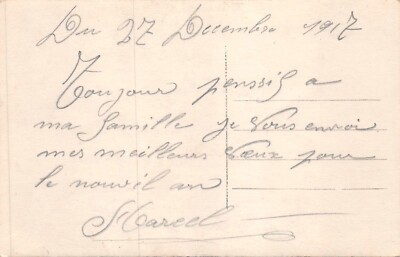 Du 27 Decembre 1917
Toujour penssif a
ma famille je vous envoi
mes meilleurs Vœux pour
le nouvil an
Marcel